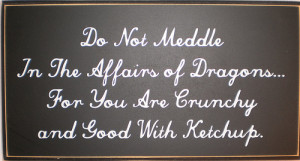 Do Not Meddle
In The Affairs of Dragons...
For You Are Crunchy
and Good With Ketchup.